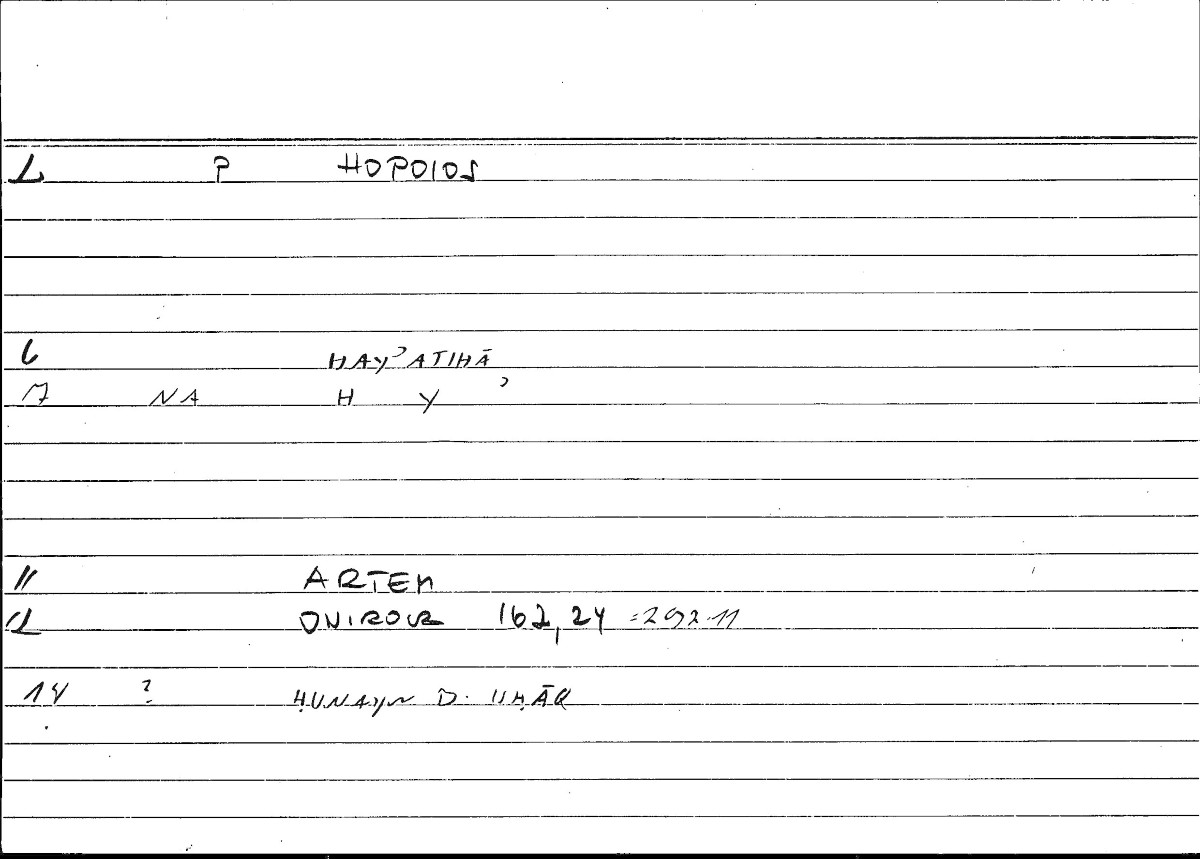 2 P HOPOIOS
6 HAYʾATIHĀ
7 NA H Y ʾ
11 ARTEM
12 ONIROCR 162,24 =292.11
14 ? ḤUNAYN B. ISḤĀQ